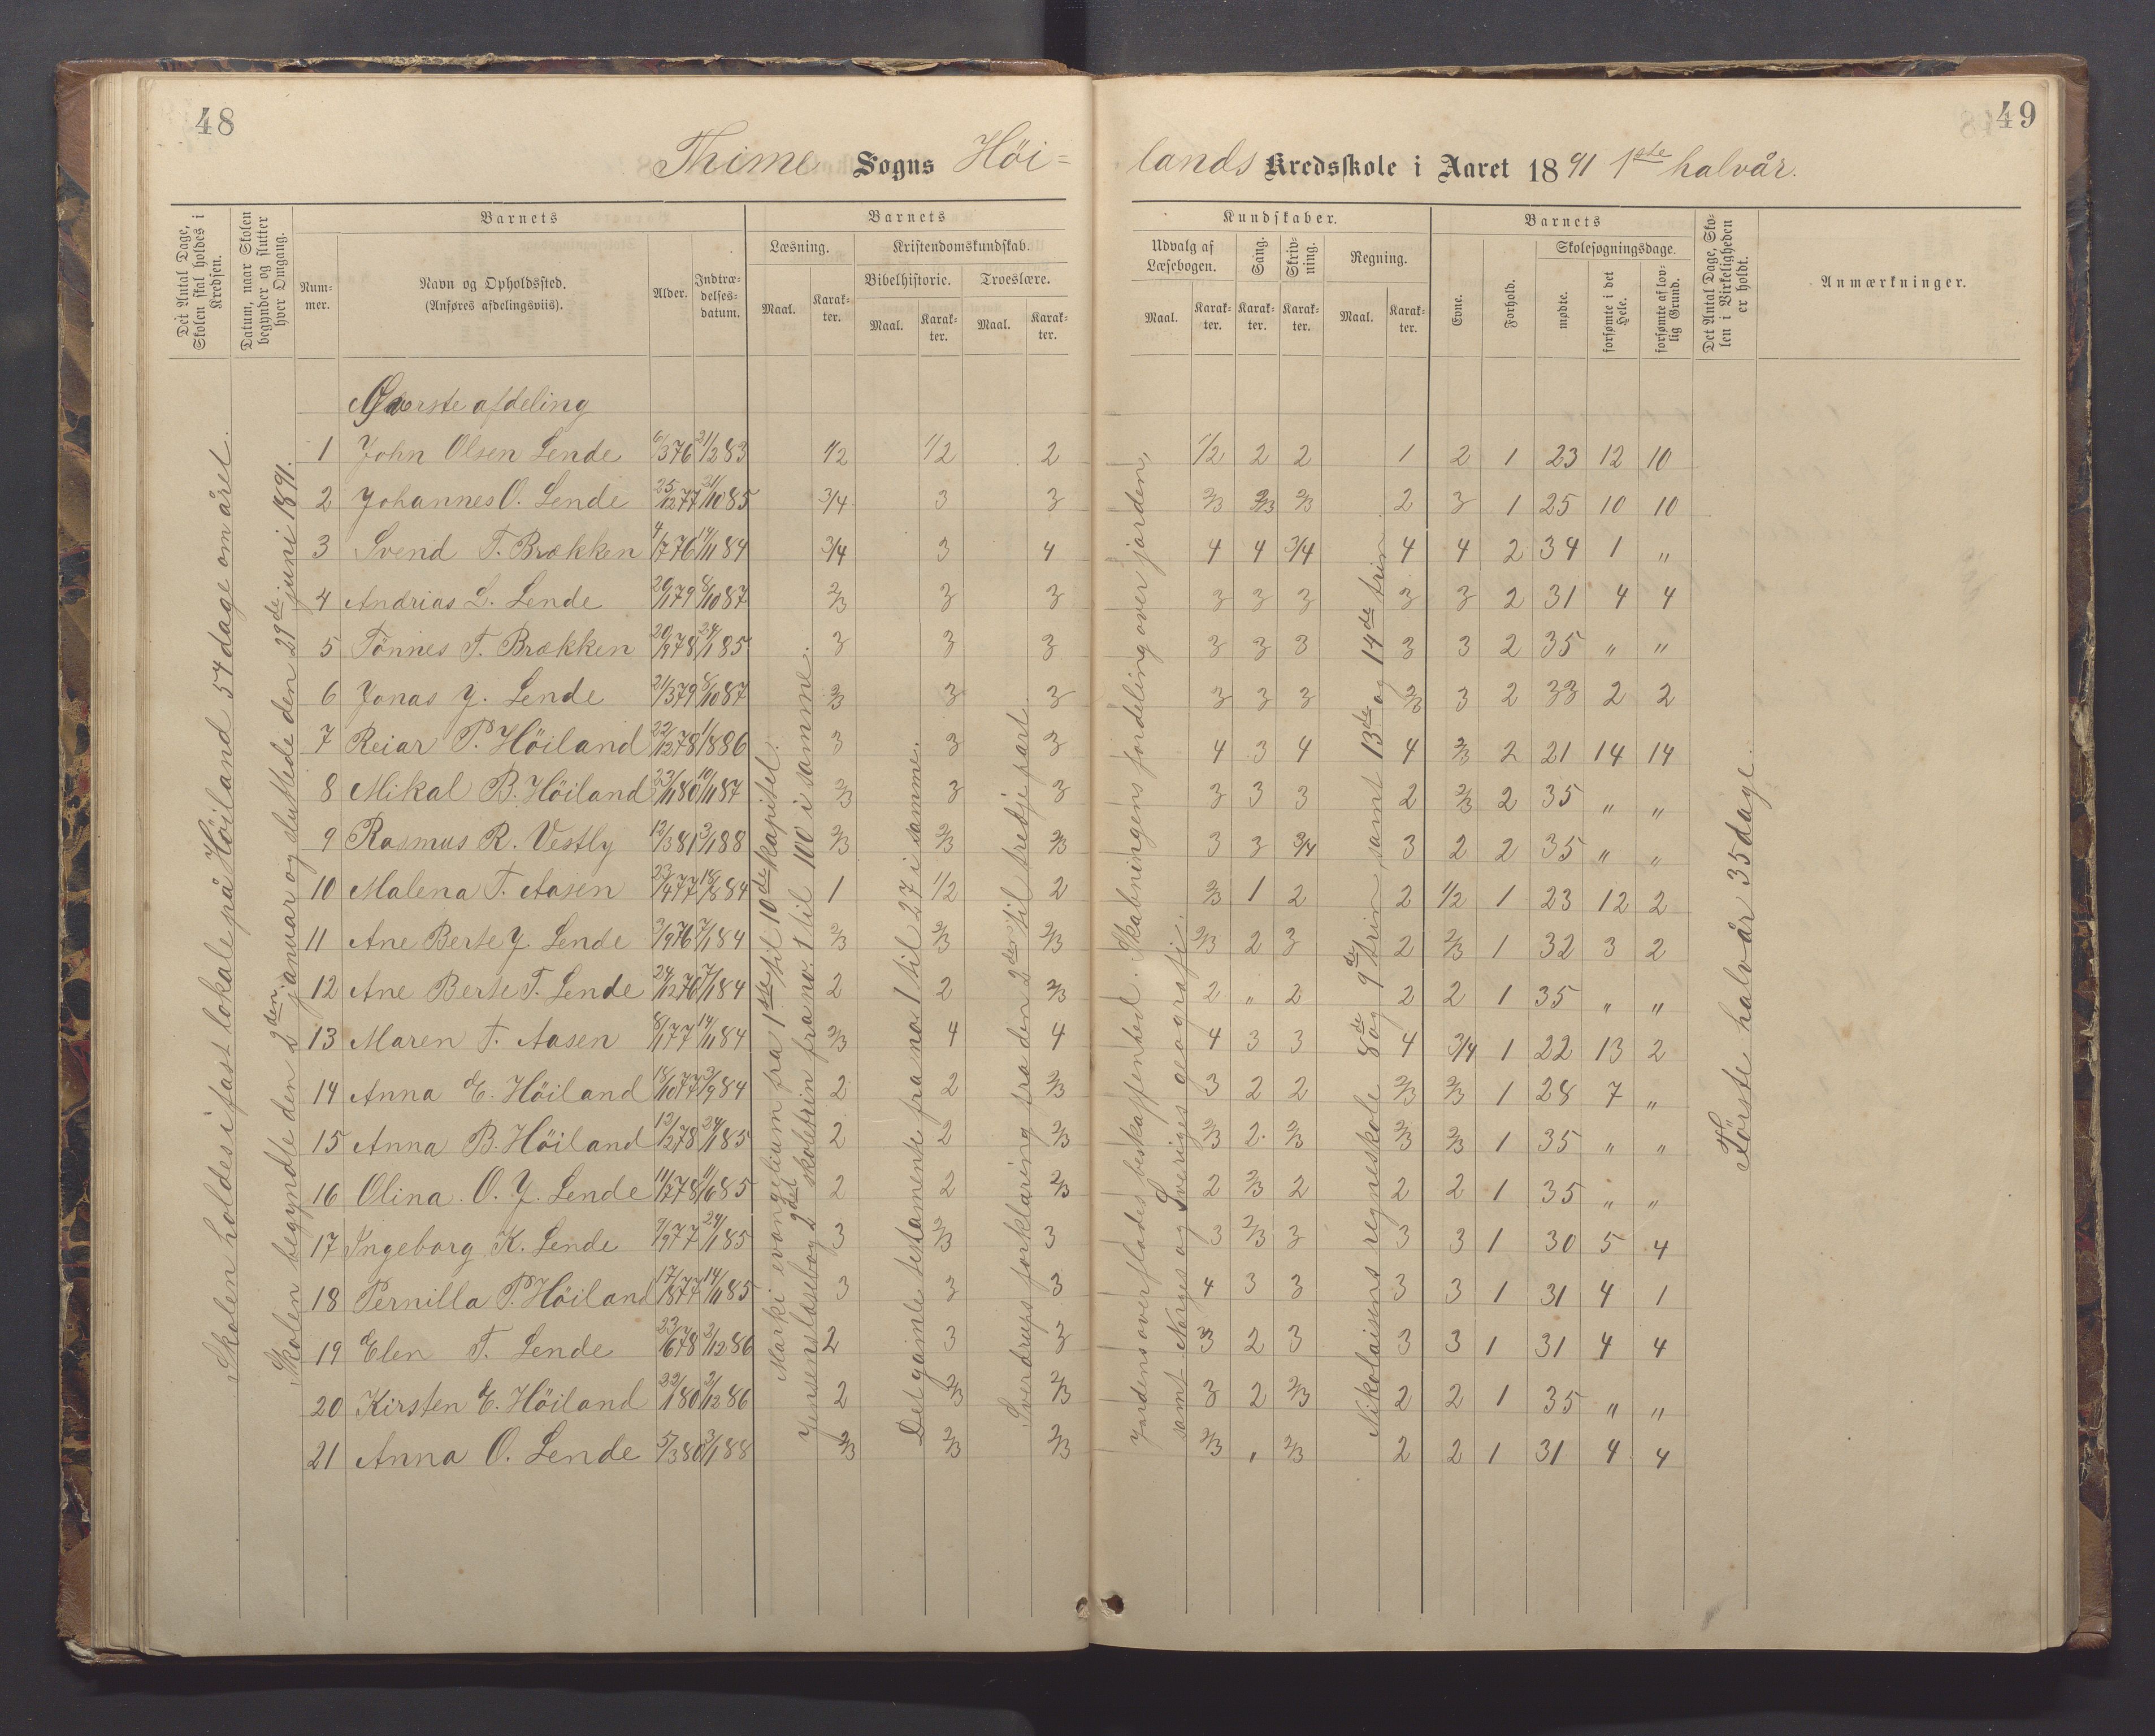 48
Thime Sogns Höi=
Det Antal Dage, Skolen skal holdes i Kredsen.
Datum, naar Skolen begynder og slutter hver Omgang.
Barnets
Num-mer.
Navn og Opholdssted. (Anføres afdelingsviis).
Alder.
Indtræ-delses-datum.
Barnets
Læsning.
Kristendomskundskab.
Bibelhistorie.
Troeslære.
Maal. Karak-ter. Maal. Karak-ter. Maal. Karak-ter.
Skolen holdes i fast lokale på Höiland 54 dage om året.
Skolen begyndte den 2den januar og sluttede den 29de juni 1891.
Øverste afdeling
1 John Olsen Lende 6/3 76 31/12 83 1/2 1/2 2
2 Johannes O. Lende 25/12 77 31/10 85 3/4 3 3
3 Svend T. Brækken 4/7 76 14/11 84 3/4 3 4
4 Andrias L. Lende 20/11 79 8/10 87 2/3 3 3
5 Tönnes T. Brækken 20/9 78 24/1 85 3 3 3
6 Jonas J. Lende 21/3 79 8/10 87 2/3 3 3
7 Reiar P. Höiland 22/12 78 1/8 86 3 3 3
8 Mikal B. Höiland 23/11 80 10/11 87 2/3 3 3
9 Rasmus R. Vestly 12/3 81 3/1 88 2/3 2/3 2/3
10 Malena T. Aasen 23/4 77 18/8 84 1 1/2 2
11 Ane Berte J. Lende 2/9 76 7/1 84 2/3 2/3 2/3
12 Ane Berte T. Lende 24/12 76 7/1 84 2 2 2/3
13 Maren T. Aasen 8/1 77 14/11 84 2/3 4 4
14 Anna E. Höiland 18/10 77 3/9 84 2 2 2/3
15 Anna B. Höiland 12/2 78 24/1 85 2 2 2/3
16 Olina O. J. Lende 11/7 78 11/6 85 2 2 2/3
17 Ingeborg K. Lende 7/9 77 24/1 85 3 2/3 3
18 Pernilla P. Höiland 17/8 77 14/11 85 3 3 3
19 Elen T. Lende 23/6 78 2/12 86 2 3 3
20 Kirsten E. Höiland 22/1 80 2/12 86 2 2/3 2/3
21 Anna O. Lende 5/3 80 3/1 88 2/3 2/3 2/3
Marki evangelium fra 1ste til 10de kapitel.
Jensens læsebog 2det skoletrin fra no. 1 til 100 i samme.
Det gamle testamente fra no 1 til 27 i samme.
Sverdrups forklaring fra den 2den til tredje part.
49
lands Kredsskole i Aaret 1891 1ste halvår.
Kundskaber.
Udvalg af Læsebogen.
Sang.
Skriv-ning.
Regning.
Maal. Karak-ter. Karak-ter. Karak-ter. Maal. Karak-ter.
Barnets
Evne.
Forhold.
Skolesøgningsdage.
mødte.
forsømte i det Hele.
forsømte af lov-lig Grund.
Det Antal Dage, Sko-len i Virkeligheden er holdt.
Anmærkninger.
1/2 2 2 1 2 1 23 12 10
2/3 2/3 2/3 2 3 1 25 10 10
4 4 3/4 4 4 2 34 1 "
3 3 3 3 3 2 31 4 4
3 3 3 3 3 2 35 " "
3 3 3 2/3 3 2 33 2 2
4 3 4 4 2/3 2 21 14 14
3 3 3 2 2/3 2 35 " "
3 3 3/4 3 2 2 35 " "
2/3 1 2 2 1/2 1 23 12 2
2/3 2 3 2 2/3 1 32 3 2
2 " 2 2 2 1 35 " "
4 3 3 4 3/4 1 22 13 2
3 2 2 2/3 2/3 1 28 7 "
2/3 2 2/3 2/3 2/3 1 35 " "
2 2/3 2 2 2 1 35 " "
3 2/3 3 3 3 1 30 5 4
4 3 3 3 3 1 31 4 1
3 2 3 3 3 1 31 4 4
3 2 2/3 2 2 1 35 " "
2/3 , 2/3 2 2 1 31 4 4
Jordens overflades beskaffenhed. Skabningens fordeling over jorden,
samt Norges og Sveriges geografi.
Nikolaisens regneskole 8de og 9de trin, samt 13de og 14de trin
Förste halvår 35 dage.